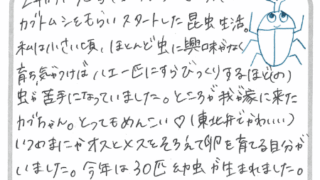 カブトムシをもらいスタートした昆虫生活。
私は小さい頃、ほとんど虫に興味がなく
育ち気がつけばハエ一匹にすらびっくりするほど(の)
虫が苦手になっていました。ところが我が家に来た
カブちゃん。とってもめんこい♡(東北弁でかわいい)
いつのまにかオスとメスをそろえて卵を育てる自分が
いました。今年は30匹幼虫が生まれました。